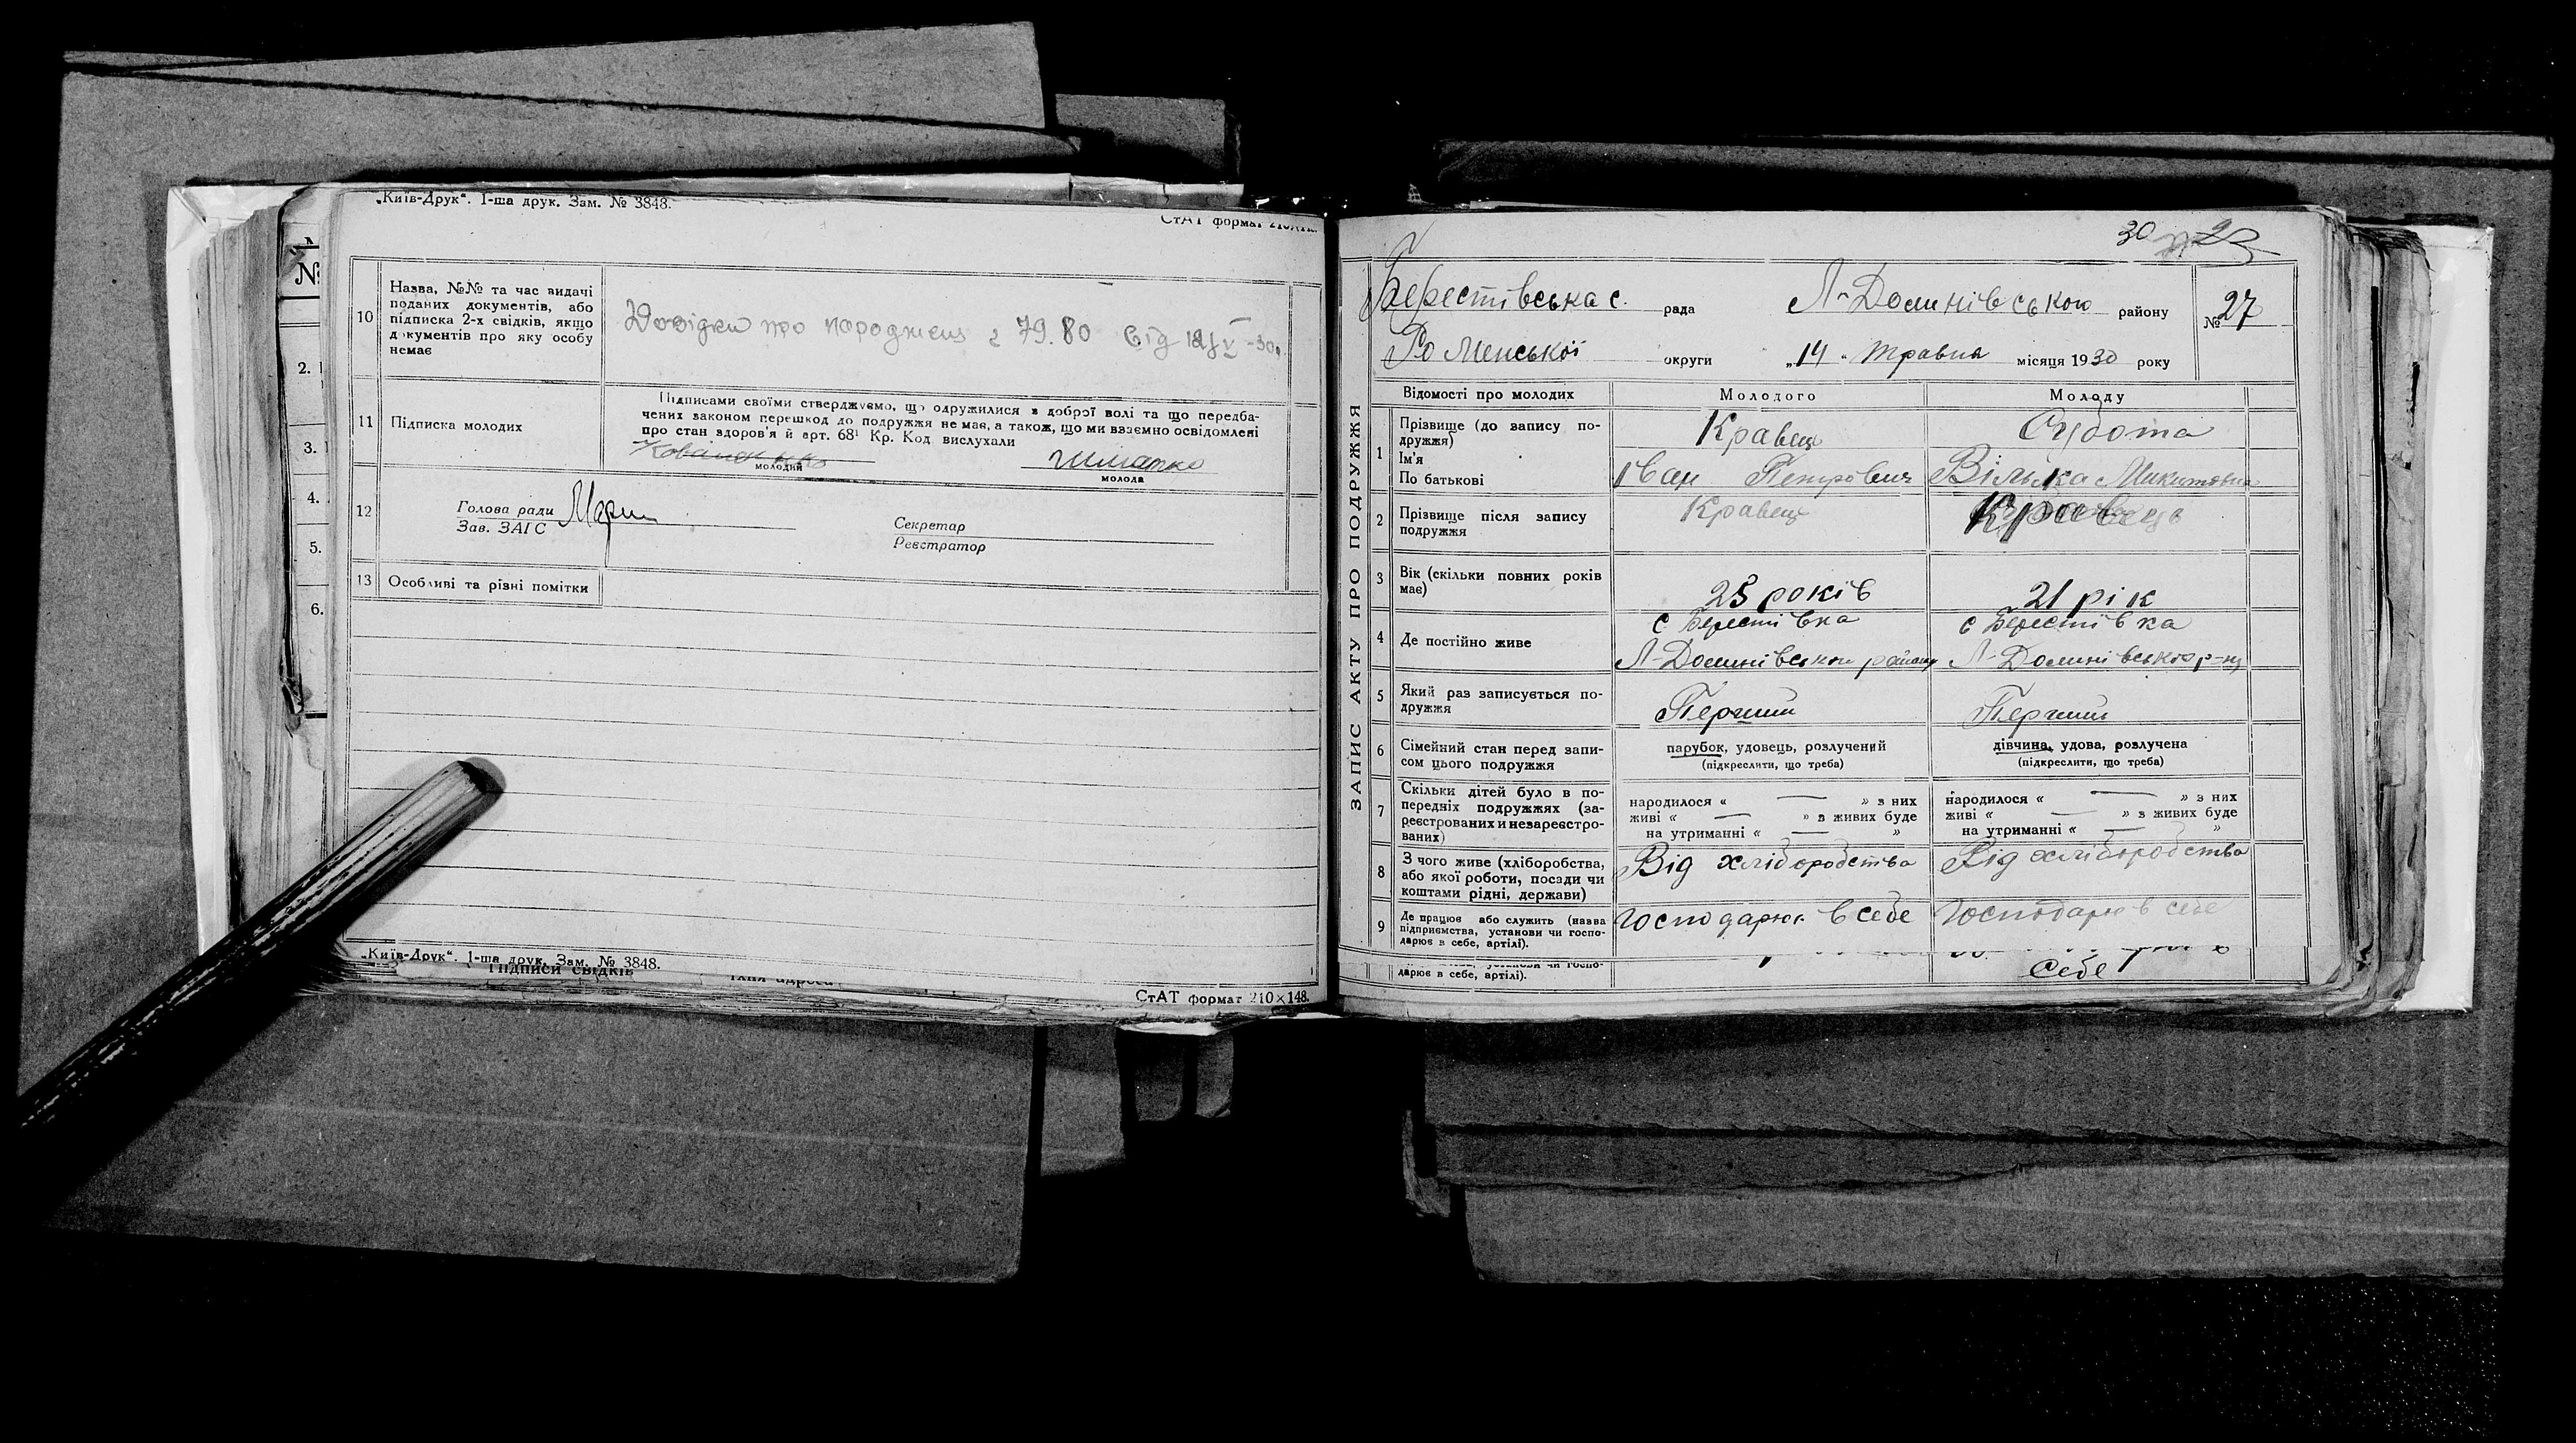 „Київ-Друк“. 1-ша друк. Зам. № 3848.
СтАТ формат
№
2.
3.
4.
5.
6.
10 Назва, №№ та час видачі поданих документів, або підписка 2-х свідків, якщо документів про яку особу немає
Довідки про народження 79.80 від
11 Підписка молодих
Підписами своїми стверджуємо, що одружилися з доброї волі та що передба-
чених законом перешкод до подружжя не має, а також, що ми взаємно освідомлені
про стан здоров'я й арт. 68¹ Кр. Код вислухали
молодий
молода
12 Голова ради
Зав. ЗАГС
Секретар
Реєстратор
13 Особливі та різні помітки
„Київ-Друк“. 1-ша друк. Зам. № 3848.
Підписи свідків
їхня адреса
СтАТ формат 210×148.
30
Берестівська с. рада Л-Долинівською району
№ 27
Роменської округи „14“ травня місяця 1930 року
ЗАПИС АКТУ ПРО ПОДРУЖЖЯ
Відомості про молодих Молодого Молоду
1 Прізвище (до запису по-
дружжя)
Кравець Субота
Ім'я
По батькові
Іван Петрович Микитовна
2 Прізвище після запису
подружжя
Кравець Кравець
3 Вік (скільки повних років
має)
25 років 21 рік
4 Де постійно живе
с Берестівка с Берестівка
Л-Долинівською району Л-Долинівського р-ну
5 Який раз записується по-
дружжя
Перший Перший
6 Сімейний стан перед запи-
сом цього подружжя
парубок, удовець, розлучений
(підкреслити, що треба)
дівчина, удова, розлучена
(підкреслити, що треба)
7 Скільки дітей було в по-
передніх подружжях (за-
реєстрованих и незареєстро-
ваних)
народилося « — » з них
живі « — » з живих буде
на утриманні « — »
народилося « — » з них
живі « — » з живих буде
на утриманні « — »
8 З чого живе (хліборобства,
або якої роботи, посади чи
коштами рідні, держави)
Від хліборобства Від хліборобства
9 Де працює або служить (назва
підприємства, установи чи госпо-
дарює в себе, артілі).
Господарює в себе Господарює в себе
дарює в себе, артілі).
себе